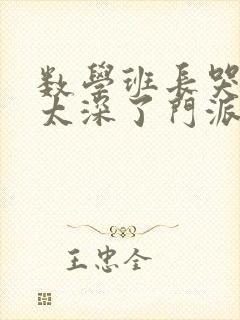 数學班長哭
太深了門派
王忠全